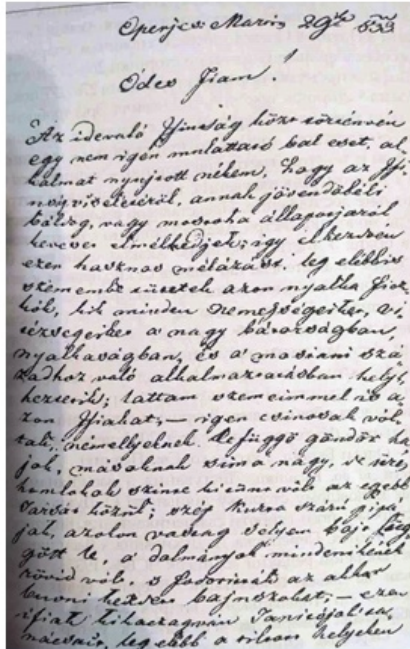 Eperjes Marts 29ke 833
Édes Fiam!
Az idevaló Ifiuság közt történvén
egy nem igen mulattató bal eset, al,
kalmat nyujtott nékem, hogy az Ifi,
annak jövendőbéli
boldog, vagy mostoha állapotjáról
kevesse elmélkedjek; így elkezdvén
ezen hasznos mélázást, leg elébb is
szemembe tüntek azon nyalka fiats,
kók, kik minden nemességeiket, vi,
tézségeiket a nagy bátorságban,
nyalkaságban, és a mostani szá,
zadhoz való alkalmaztatásban hely,
hezterik; láttam szemeimmel is a,
zon Ifiakat, — igen csinosak vól,
tak, némellyeknek le függő göndör ha,
jok, másoknak sima nagy, de üres
homlokok szinte ki tünt vólt az egebb
közül; szép kurta szárú pipá,
jok, azolon vastag selyem bojt
gött le, a dolmányok mindeniknek
rövid vólt, s az alkar
bajuszokat; — ezen
ifiak
leg elébb a helyeken